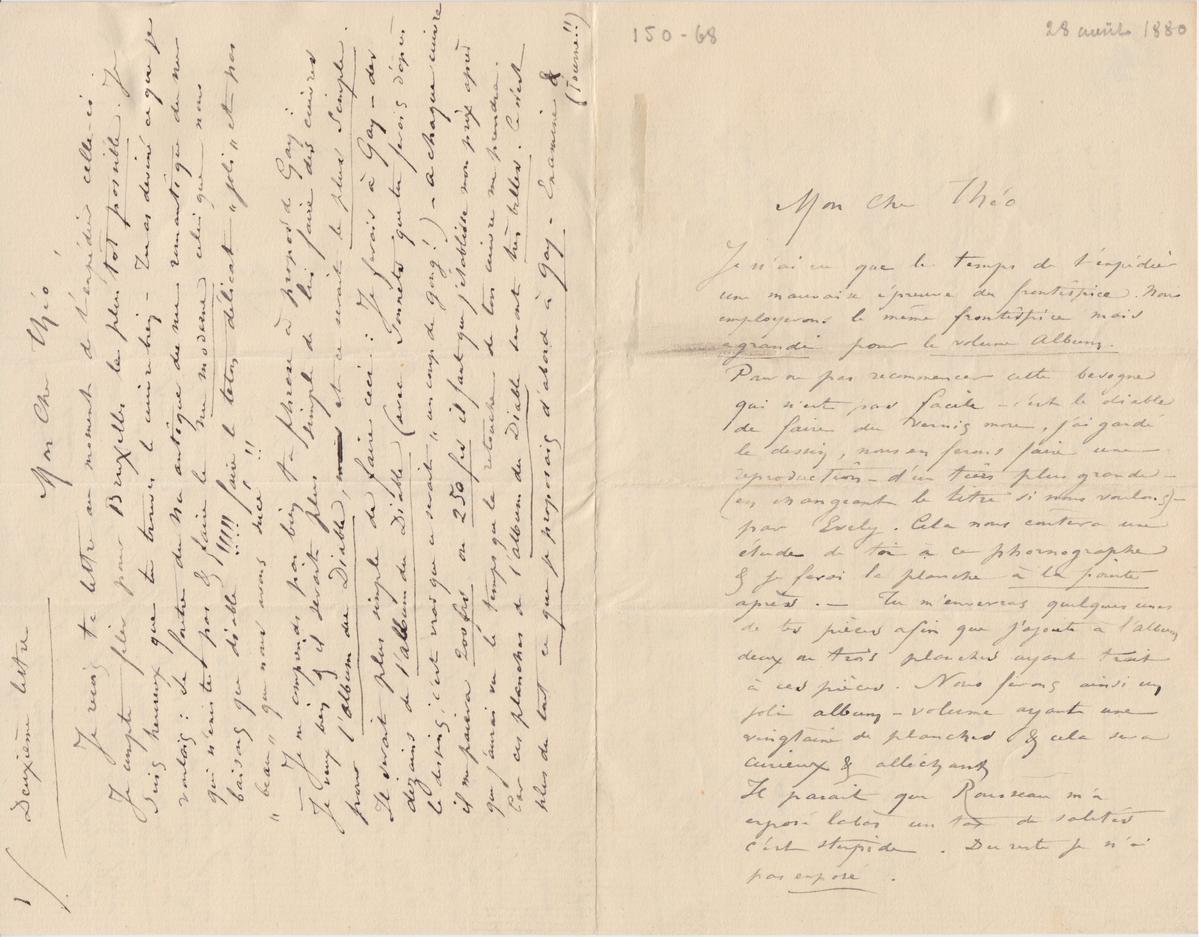 150-68
28 août 1880
Mon Cher Théo
Je n'ai eu que le temps de t'expédier
une mauvaise épreuve du frontispice. Nous
employerons le même frontispice mais
agrandi pour le volume Album.
Pour ne pas recommencer cette besogne
qui n'est pas facile – c'est le diable
de faire du vernis mou, j'ai gardé
le dessin, nous en ferons faire une
reproduction – d'un tiers plus grande –
(en changeant le titre si nous voulons) –
par Evely. Cela nous coutera une
étude de toi à ce phornographe
& je ferai la planche à la pointe
après. — Tu m'enverras quelques unes
de tes pièces afin que j'ajoute à l'album
deux ou trois planches ayant trait
à ces pièces. Nous ferons ainsi un
joli album – volume ayant une
vingtaine de planches & cela sera
curieux & alléchant
Il parait que Rousseau m'a
exposé labas un tas de saletés
c'est stupide. Du reste je n'ai
pas exposé.
Deuxième lettre
Mon Cher Théo
Je reçois ta lettre au moment de t'expédier celle-ci
Je compte filer pour Bruxelles le plus tôt possible. Je
suis heureux que tu trouves le cuivre bien – Tu as deviné ce que je
voulais : se foutre du nu antique du nu romantique du nu
qui n'existe pas & faire le nu moderne celui que nous
baisons que diable !!!!! faire le teton délicat "joli" et pas
"beau" que nous avons sucé !!
Je ne comprends pas bien ta phrase à propos de Gay :
Je veux bien & il serait plus simple de lui faire des cuivres
pour l'album du Diable, et ce serait le plus simple.
Il serait plus simple de faire ceci : Je ferais à Gay – des
dizains de l'album du Diable (avec Sonnets que tu ferais d'après
le dessin, c'est vrai que ce serait "un coup de gong !) – à chaque cuivre
il me paiera 200 frs ou 250 frs il faut que j'établisse mon prix après
que j'aurai vu le temps que la retouche de ton cuivre me prendra.
Car ces planches de l'album du Diable seront très belles. C'est
plus du tout ce que je proposais d'abord à Gay – Examine &
(Tourne !!)